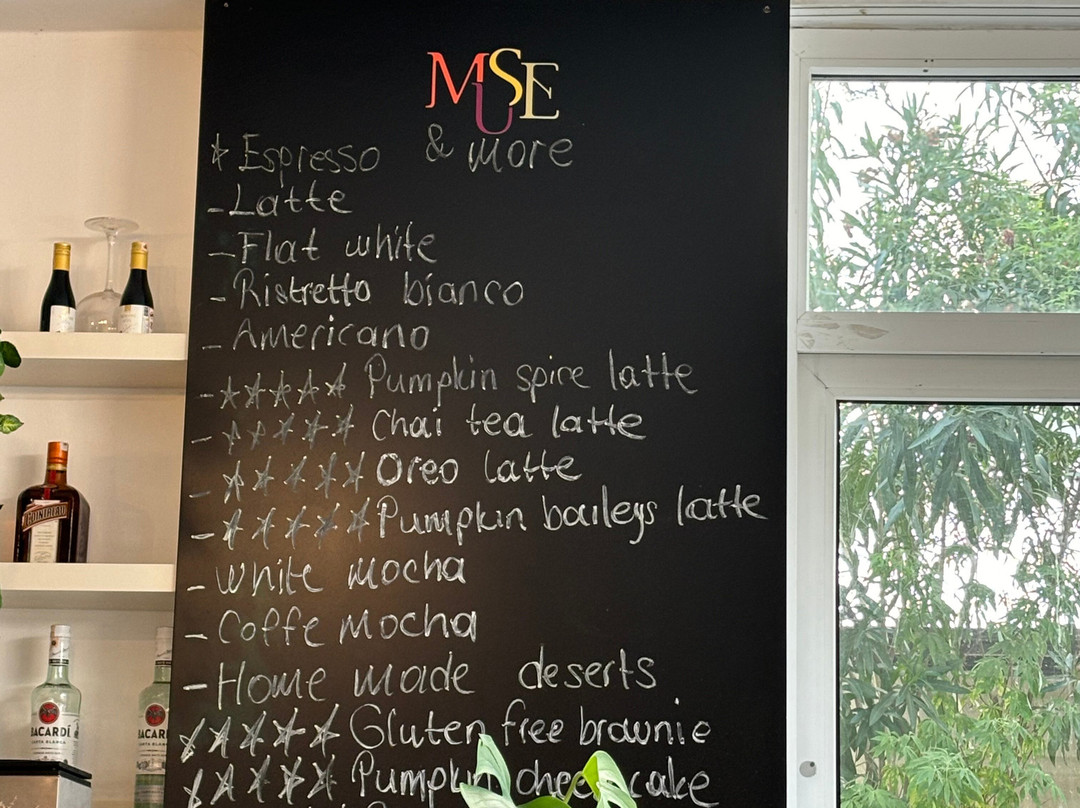 MUSE
& more
* Espresso
- Latte
- Flat white
- Ristretto bianco
- Americano
- ☆☆☆☆☆ Pumpkin spice latte
- ☆☆☆☆☆ Chai tea latte
- ☆☆☆☆☆ Oreo latte
- ☆☆☆☆☆ Pumpkin baileys latte
- White mocha
- Coffe mocha
- Home made deserts
☆☆☆☆☆ Gluten free brownie
☆☆☆☆☆ Pumpkin cake
COINTREAU
BACARDÍ
CARTA BLANCA
BACARDÍ